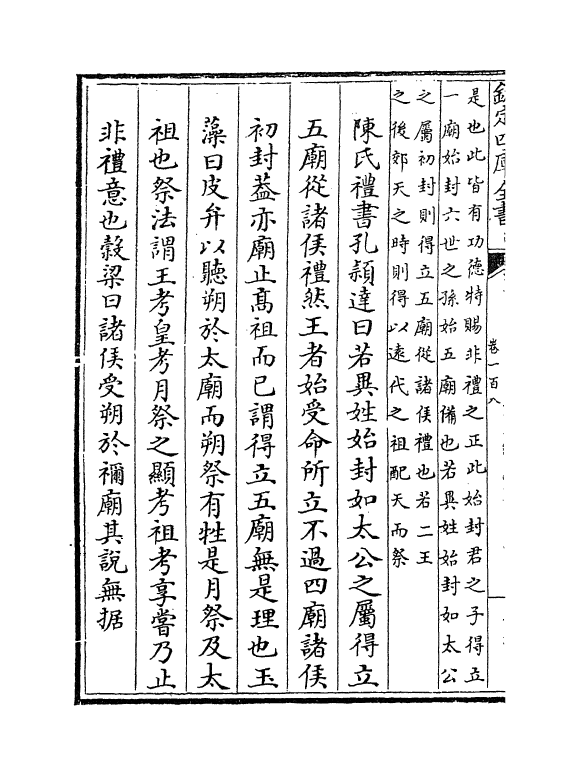 欽定四庫全書
卷一百八
是也此皆有功德特賜非禮之正此始封君之子得立
一廟始封六世之孫始五廟備也若異姓始封如太公
之屬初封則得立五廟從諸侯禮也若二王
之後郊天之時則得以遠代之祖配天而祭
陳氏禮書孔頴達曰若異姓始封如太公之屬得立
五廟從諸侯禮然王者始受命所立不過四廟諸侯
初封葢亦廟止髙祖而已謂得立五廟無是理也玉
藻曰皮弁以聽朔於太廟而朔祭有牲是月祭及太
祖也祭法謂王考皇考月祭之顯考祖考享嘗乃止
非禮意也榖梁曰諸侯受朔於禰廟其說無据